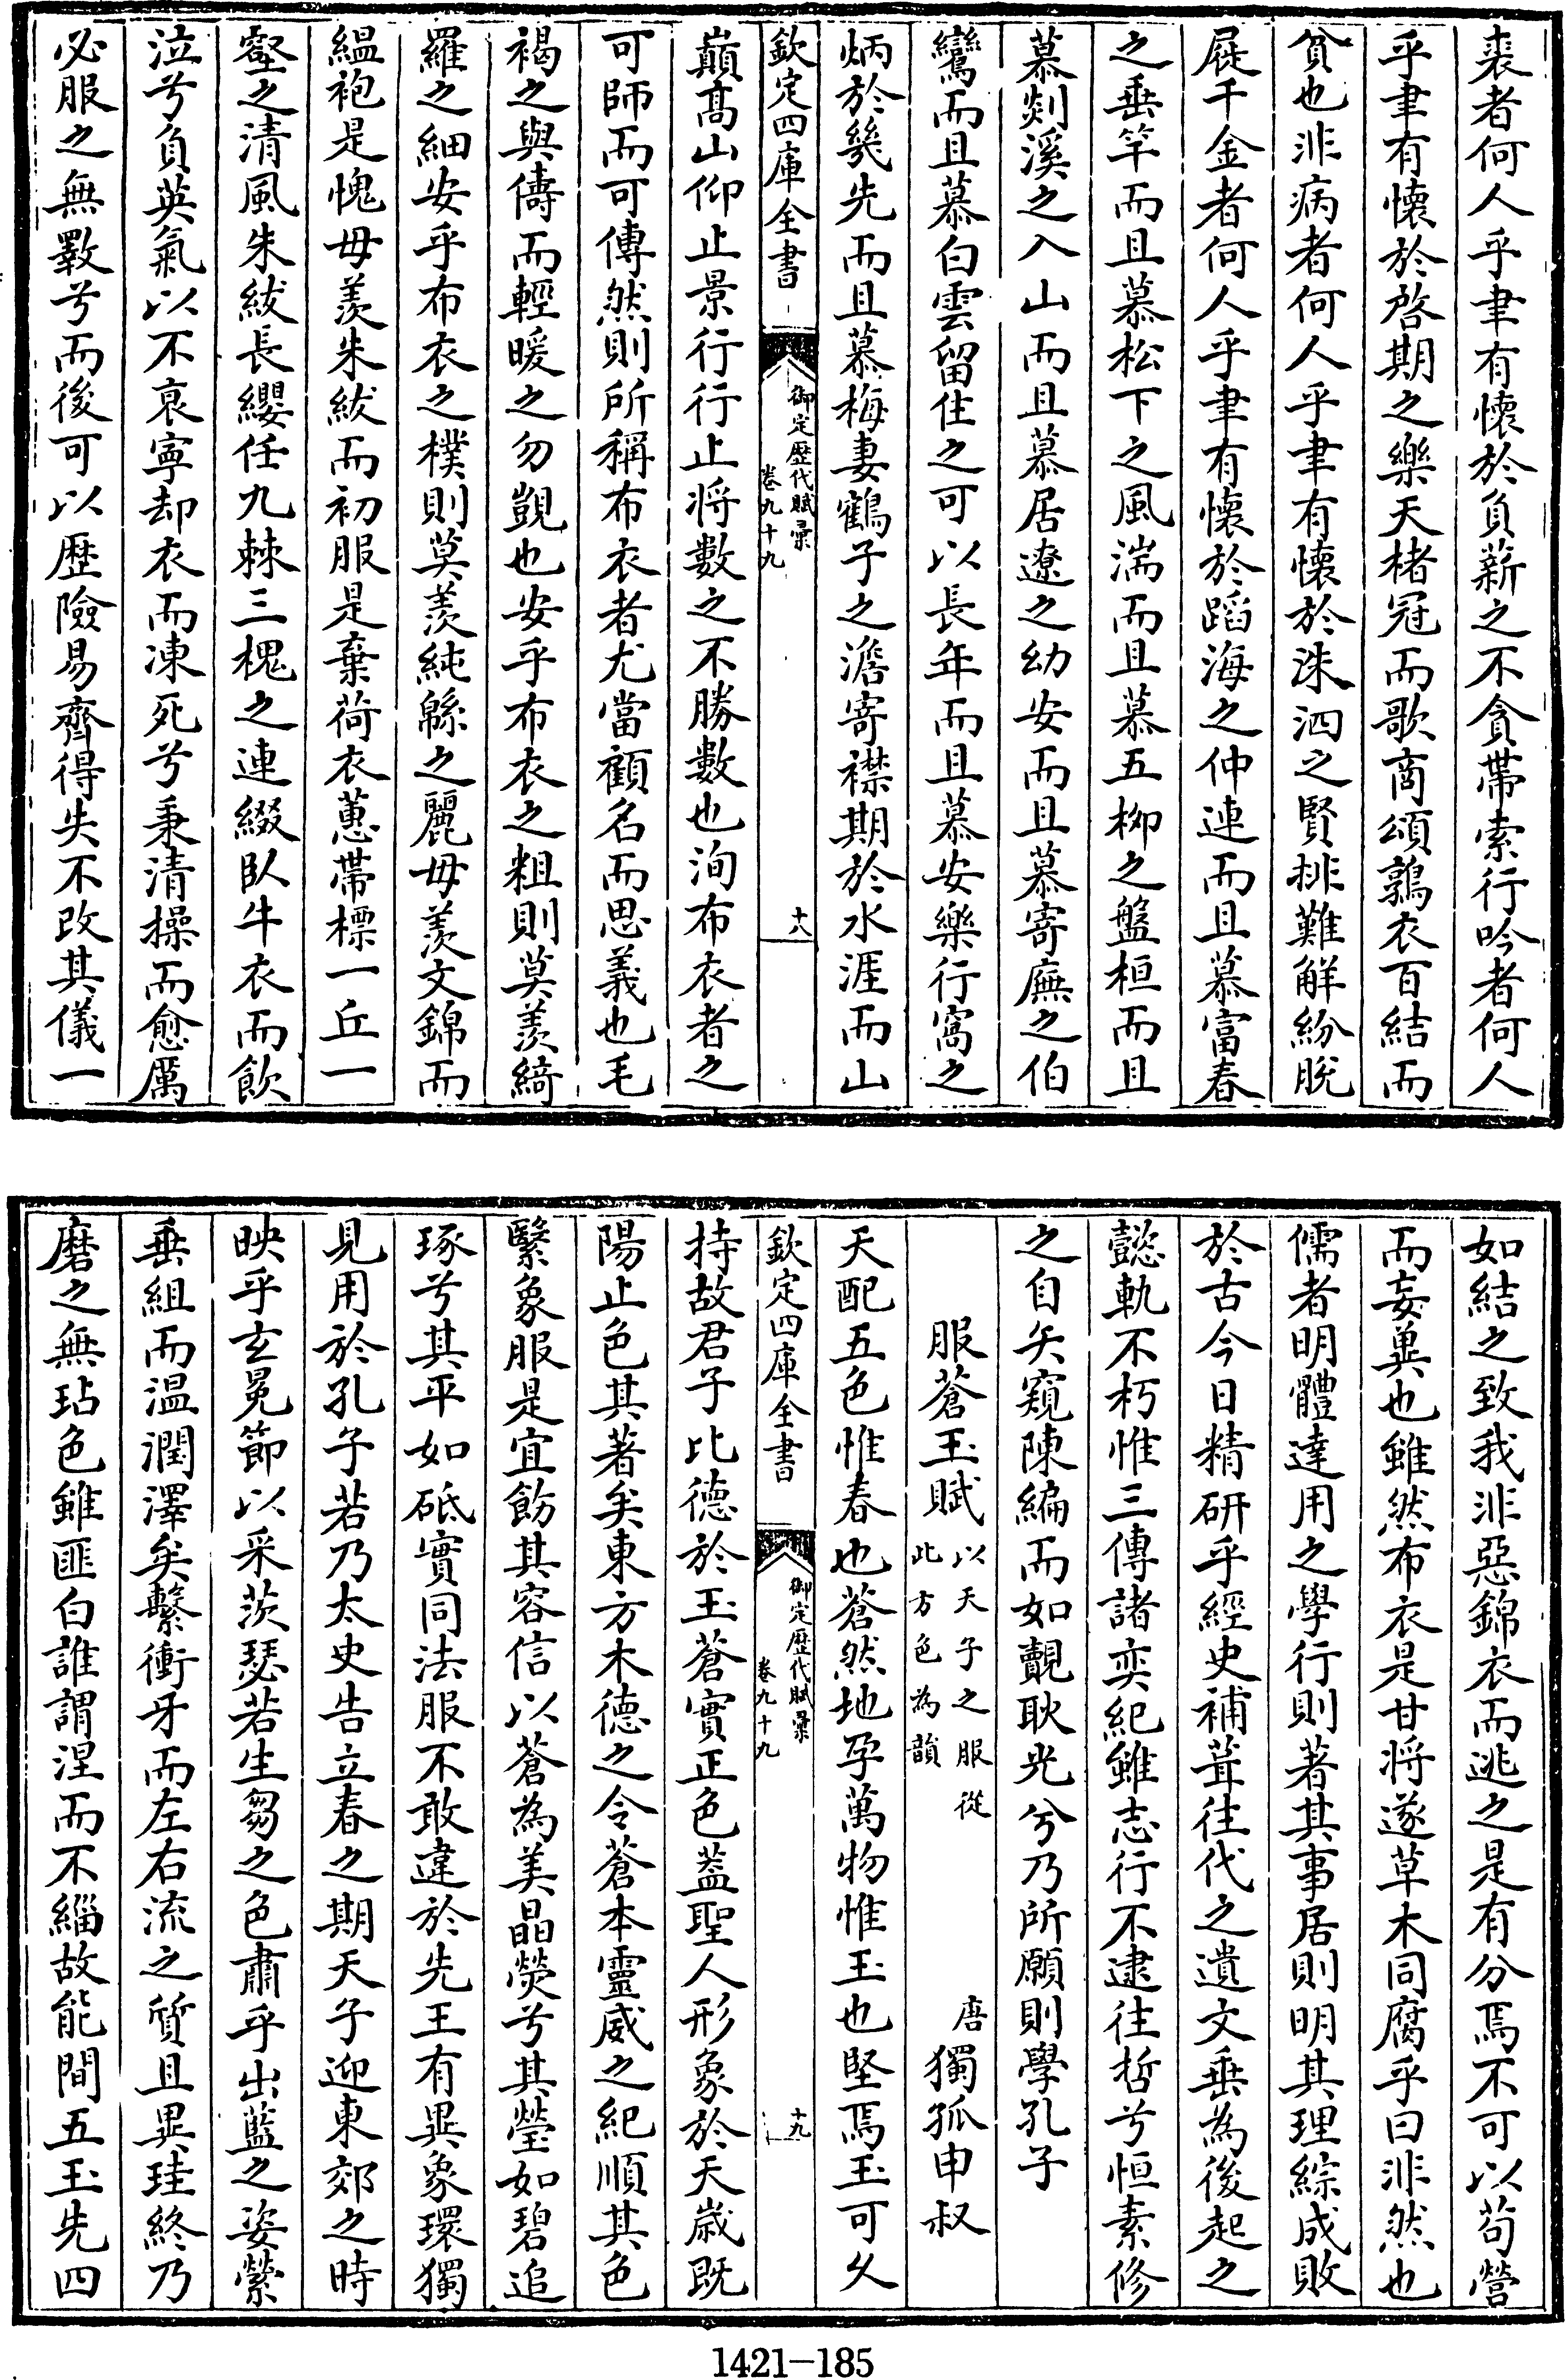 裘者何人乎聿有懷於負薪之不貪帶索行吟者何人
乎聿有懷於啓期之樂天楮冠而歌商頌鶉衣百結而
貧也非病者何人乎聿有懷於洙泗之賢排難解紛脫
屣千金者何人乎聿有懷於蹈海之仲連而且慕富春
之垂竿而且慕松下之風湍而且慕五柳之盤桓而且
慕剡溪之入山而且慕居遼之幼安而且慕寄廡之伯
鸞而且慕白雲留住之可以長年而且慕安樂行窩之
炳於幾先而且慕梅妻鶴子之澹寄襟期於水涯而山
欽定四庫全書
御定歷代賦彙
卷九十九
十八
巔高山仰止景行行止將數之不勝數也洵布衣者之
可師而可傳然則所稱布衣者尤當顧名而思義也毛
褐之與儔而輕暖之勿覬也安乎布衣之粗則莫羨綺
羅之細安乎布衣之樸則莫羨純緜之麗毋羨文錦而
緼袍是愧毋羨朱紱而初服是棄荷衣蕙帶標一丘一
壑之清風朱紱長纓任九棘三槐之連綴臥牛衣而飲
泣兮負英氣以不衰寧却衣而凍死兮秉清操而愈厲
必服之無斁兮而後可以歷險易齊得失不改其儀一
如結之致我非惡錦衣而逃之是有分焉不可以苟營
而妄兾也雖然布衣是甘將遂草木同腐乎曰非然也
儒者明體達用之學行則著其事居則明其理綜成敗
於古今日精研乎經史補葺往代之遺文垂為後起之
懿軌不朽惟三傳諸奕紀雖志行不逮往哲兮恒素修
之自矢窺陳編而如覿耿光兮乃所願則學孔子
服蒼玉賦 以天子之服從此方色為韻 唐 獨孤申叔
天配五色惟春也蒼然地孕萬物惟玉也堅焉玉可久
欽定四庫全書
御定歷代賦彙
卷九十九
十九
持故君子比德於玉蒼實正色蓋聖人形象於天歲既
陽止色其著矣東方木德之令蒼本靈威之紀順其色
繄象服是宜飭其容信以蒼為美晶熒兮其瑩如碧追
琢兮其平如砥實同法服不敢違於先王有異象環獨
見用於孔子若乃太史告立春之期天子迎東郊之時
映乎玄冕節以采茨瑟若生芻之色肅乎出藍之姿縈
垂組而温潤澤矣繫衝牙而左右流之質且異珪終乃
磨之無玷色雖匪白誰謂涅而不緇故能間五玉先四
1421-185